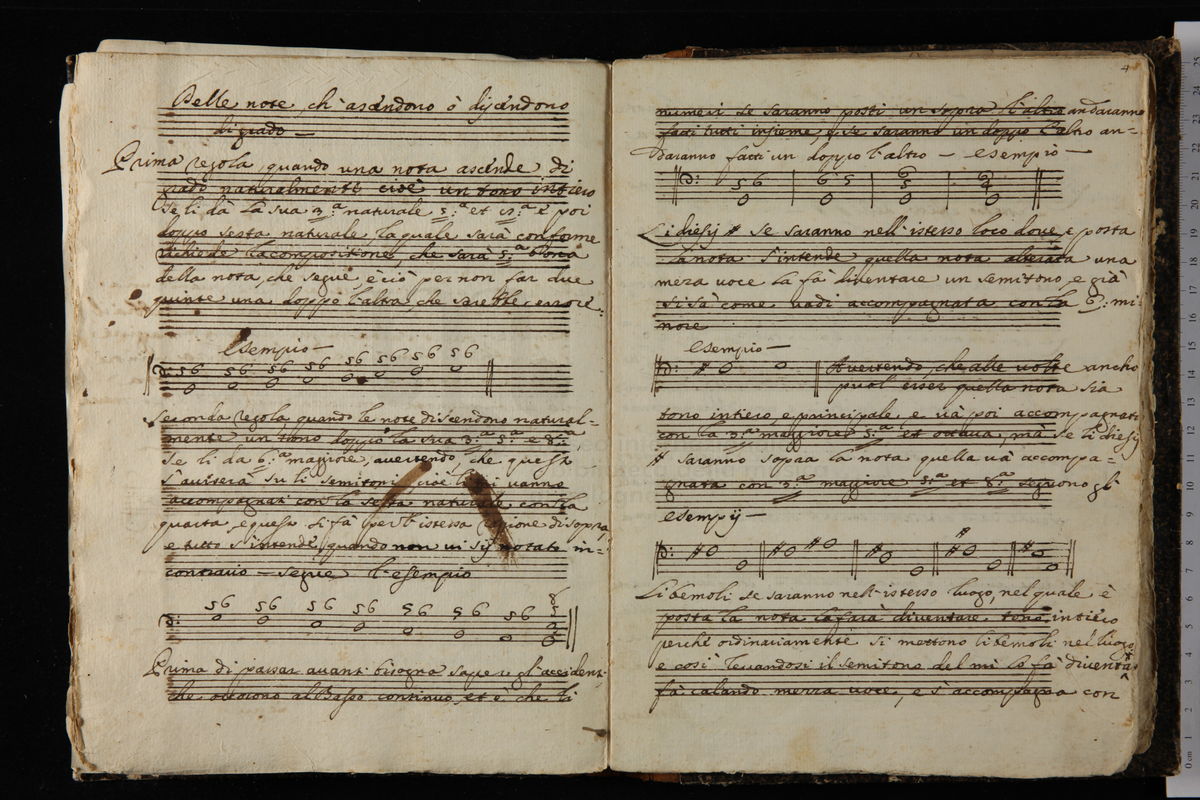 Delle note, ch'ascendono ò discendono
di grado —
Prima regola, quando una nota ascende di
grado naturalmente cioè un tono intiero
se li dà la sua 3.ª naturale 5.ª et 8.ª e poi
doppo sesta naturale, la quale sarà conforme
richiede la compositione, che sarà 5.ª
della nota, che segue, e ciò per non far due
quinte una doppo l'altra, che sarebbe errore.
Esempio —
56 56 56 56 56 56 56 56
Seconda regola, quando le note discendono natural=
mente un tono doppo la sua 3.ª 5.ª e 8.ª
se li da 6.ª maggiore, avertendo, che questa
s'avisera su li semitoni, cioè li mi vanno
accompagnati con la sesta naturale con la
quarta, e questa si fà per l'istessa ragione di sopra,
e tutto s'intende, quando non vi sij notato in=
contrario — segue l'esempio
56 56 56 56 56 56 56 8 5 3
Prima di passar avanti bisogna saper gl'accidenti
che occorono al Basso continuo, et è che li
4
numeri se saranno posti un sopra l'altro andaranno
fatti tutti insieme, e se saranno un doppo l'altro an=
daranno fatti un doppo l'altro — esempio —
56 65
Li diesij # se saranno nell'istesso loco dove è posta
la nota s'intende quella nota alterata una
meza voce la fà diventare un semitono, e già
si sà come vadi accompagnata con la 6.ª mi=
nore
esempio —
Avertendo, che alle volte ancho
puol esser quella nota sia
tono intiero, e principale, e và poi accompagnato
con la 3.ª maggiore 5.ª et ottava, mà se li diesij
# saranno sopra la nota quella và accompa=
gnata con 3.ª maggiore 5.ª et 8.ª seguono gl
esempij —
# # # # # #
Li bemoli se saranno nell'istesso luogo, nel quale è
posta la nota la farà diventare tono intiero
perché ordinariamente si mettono li bemoli nel luogo
e così levandosi il semitono del mi lo fà diventar
fà calando mezza voce, e s'accompagna con